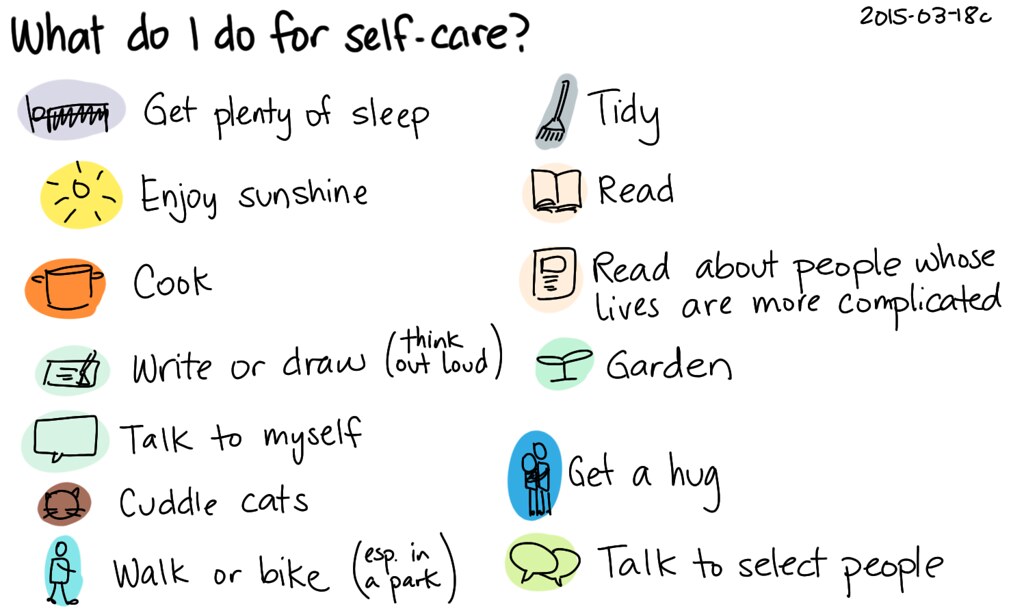 What do I do for self-care?
2015-03-18c
Get plenty of sleep
Enjoy sunshine
Cook
Write or draw (think out loud)
Talk to myself
Cuddle cats
Walk or bike (esp. in a park)
Tidy
Read
Read about people whose
lives are more complicated
Garden
Get a hug
Talk to select people